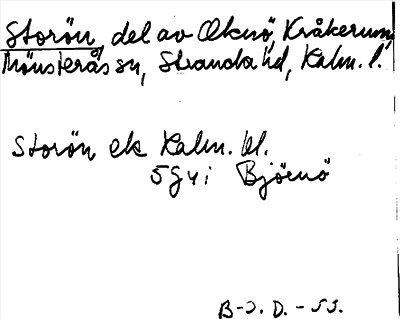 Storön, del av Oknö, Kråkerum,
Mönsterås sn, Stranda hd, Kalm. l.
Storön ek Kalm. bl.
5G4i Björnö
B-J. D. -53.